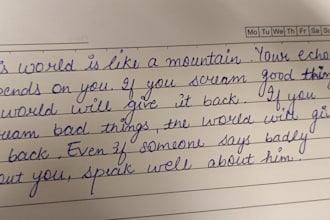 Mo Tu We Th Fr Sa Su
s world is like a mountain. Your echo
pends on you. If you scream good thin
world will give it back. If you
ream bad things, the world will gi
back. Even if someone says badly
out you, speak well about him.